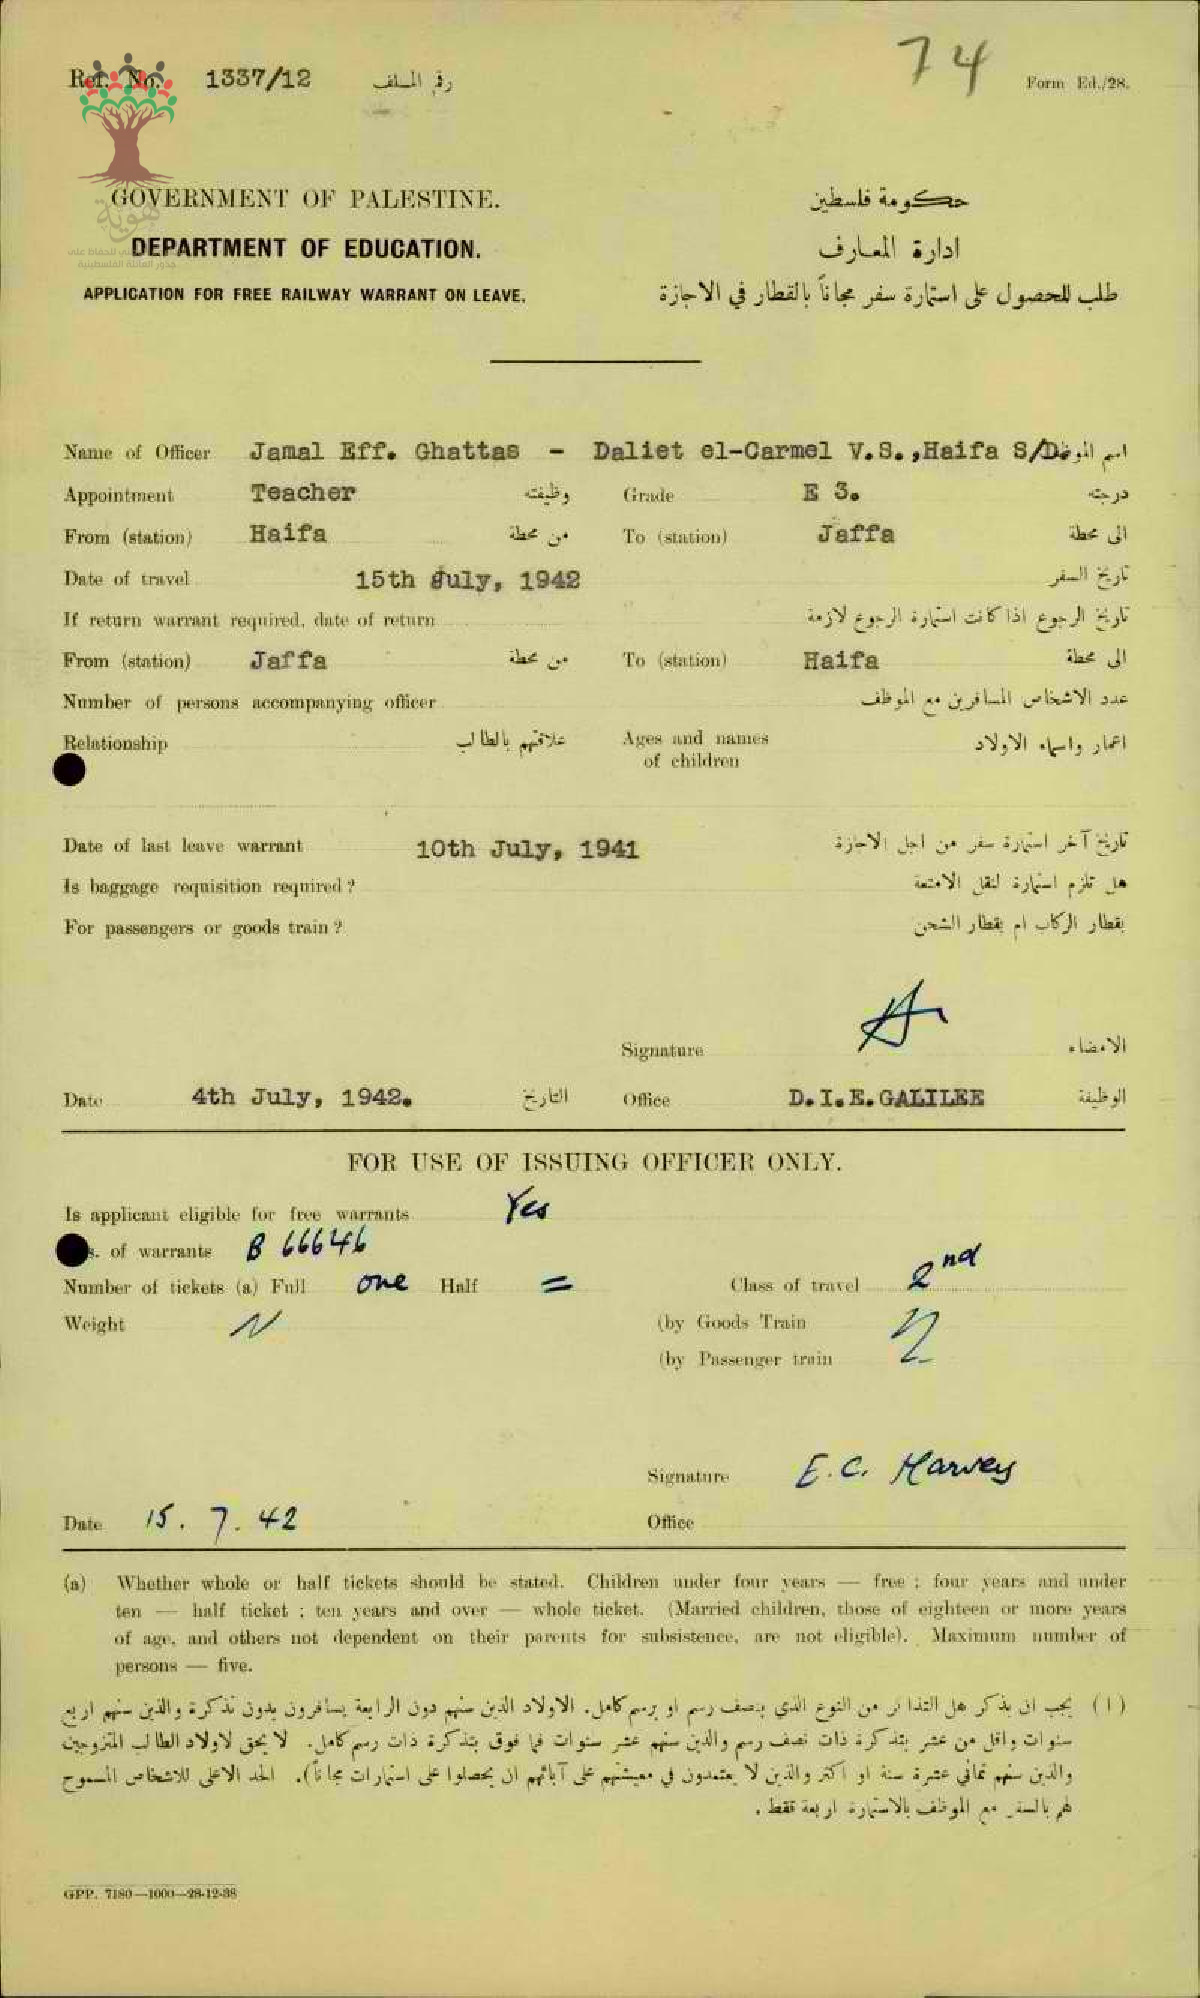 74
Ref. No. 1337/12 رقم الملف
Form Ed./28.
GOVERNMENT OF PALESTINE. حكومة فلسطين
هوية
DEPARTMENT OF EDUCATION. ادارة المعارف
جذور العائلة الفلسطينية
APPLICATION FOR FREE RAILWAY WARRANT ON LEAVE. طلب للحصول على استمارة سفر مجاناً بالقطار في الاجازة
Name of Officer Jamal Eff. Ghattas - Daliet el-Carmel V.S.,Haifa S/D. اسم الموظف
Appointment Teacher وظيفته Grade E 3. درجته
From (station) Haifa من محطة To (station) Jaffa الى محطة
Date of travel 15th July, 1942 تاريخ السفر
If return warrant required, date of return تاريخ الرجوع اذا كانت استمارة الرجوع لازمة
From (station) Jaffa من محطة To (station) Haifa الى محطة
Number of persons accompanying officer عدد الاشخاص المسافرين مع الموظف
Relationship علاقتهم بالطالب Ages and names of children اعمار واسماء الاولاد
Date of last leave warrant 10th July, 1941 تاريخ آخر استمارة سفر من اجل الاجازة
Is baggage requisition required? هل تلزم استمارة لنقل الامتعة
For passengers or goods train? بقطار الركاب ام بقطار الشحن
Signature الامضاء
Date 4th July, 1942. التاريخ Office D.I.E.GALILEE الوظيفة
FOR USE OF ISSUING OFFICER ONLY.
Is applicant eligible for free warrants Yes
s. of warrants B 66646
Number of tickets (a) Full one Half = Class of travel 2nd
Weight N (by Goods Train
(by Passenger train
Signature E.C. Harvey
Date 15.7.42 Office
(a) Whether whole or half tickets should be stated. Children under four years — free; four years and under
ten — half ticket; ten years and over — whole ticket. (Married children, those of eighteen or more years
of age, and others not dependent on their parents for subsistence, are not eligible). Maximum number of
persons — five.
(ا) يجب ان يذكر هل التذاكر من النوع الذي بنصف رسم او برسم كامل. الاولاد الذين سنهم دون الرابعة يسافرون بدون تذكرة والذين سنهم اربع
سنوات واقل من عشر بتذكرة ذات نصف رسم والذين سنهم عشر سنوات فما فوق بتذكرة ذات رسم كامل. لا يحق لاولاد الطالب المتزوجين
والذين سنهم ثماني عشرة سنة او اكثر والذين لا يعتمدون في معيشتهم على آبائهم ان يحصلوا على استمارات مجاناً). الحد الاعلى للاشخاص المسموح
لهم بالسفر مع الموظف بالاستمارة اربعة فقط.
GPP. 7180—1000—28-12-38